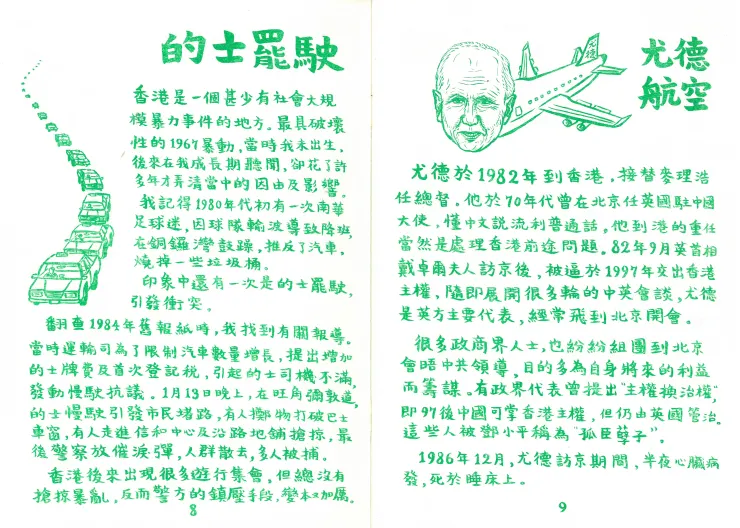 的士罷駛
香港是一個甚少有社會大規
模暴力事件的地方。最具破壞
性的1967暴動,當時我未出生,
後來在我成長期聽聞,卻花了許
多年才弄清當中的因由及影響。
我記得1980年代初有一次南華
足球迷,因球隊輸波導致降班,
在銅鑼灣鼓躁,推反了汽車,
燒掉一些垃圾桶。
印象中還有一次是的士罷駛,
引發衝突。
翻查1984年舊報紙時,我找到有關報導。
當時運輸司為了限制汽車數量增長,提出增加
的士牌費及首次登記税,引起的士司機不滿,
發動慢駛抗議。1月13日晚上,在旺角彌敦道,
的士慢駛引發市民堵路,有人擲物打破巴士
車窗,有人走進信和中心及沿路地舖搶掠,最
後警察放催淚彈,人群散去,多人被捕。
香港後來出現很多遊行集會,但總沒有
搶掠暴亂,反而警方的鎮壓手段,變本又加厲。
8
尤德
航空
尤德
尤德於1982年到香港,接替麥理浩
任總督。他於70年代曾在北京任英國駐中國
大使,懂中文説流利普通話。他到港的重任
當然是處理香港前途問題。82年9月英首相
戴卓爾夫人訪京後,被逼於1997年交出香港
主權,隨即展開很多輪的中英會談,尤德
是英方主要代表,經常飛到北京開會。
很多政商界人士,也紛紛組團到北京
會晤中共領導,目的多為自身將來的利益
而籌謀。有政界代表曾提出“主權換治權”,
即97後中國可掌香港主權,但仍由英國管治。
這些人被鄧小平稱為“孤臣孽子”。
1986年12月,尤德訪京期間,半夜心臟病
發,死於睡床上。
9